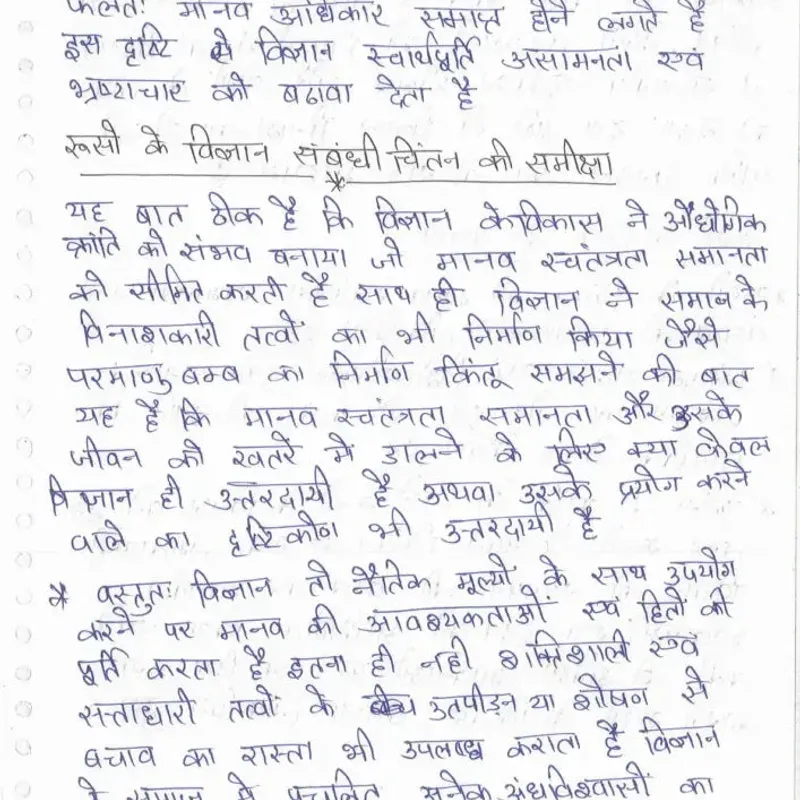 फलतः मानव अधिकार समाप्त होने लगते है
इस दृष्टि से विज्ञान स्वार्थपूर्ति असामनता एवं
भ्रष्टाचार को बढावा देता है
रूसो के विज्ञान संबंधी चिंतन की समीक्षा
यह बात ठीक है कि विज्ञान के विकास ने औधोगिक
क्रांति को संभव बनाया जो मानव स्वतंत्रता समानता
को सीमित करती है साथ ही विज्ञान ने समाज के
विनाशकारी तत्वों का भी निर्माण किया जैसे
परमाणु बम्ब का निर्माण किंतू समझने की बात
यह है कि मानव स्वतंत्रता समानता और उसके
जीवन को खतरे में डालने के लिए क्या केवल
विज्ञान ही उत्तरदायी है अथवा उसके प्रयोग करने
वाले का दृष्टिकोण भी उत्तरदायी है
* वस्तुतः विज्ञान तो नैतिक मूल्यों के साथ उपयोग
करने पर मानव की आवश्यकताओं एवं हितों की
पूर्ति करता है इतना ही नही शक्तिशाली एवं
सत्ताधारी तत्वों के उतपीडन या शोषण से
बचाव का रास्ता भी उपलबध कराता है विज्ञान
ने समाज में प्रचलित अनेक अंधविश्वासों का